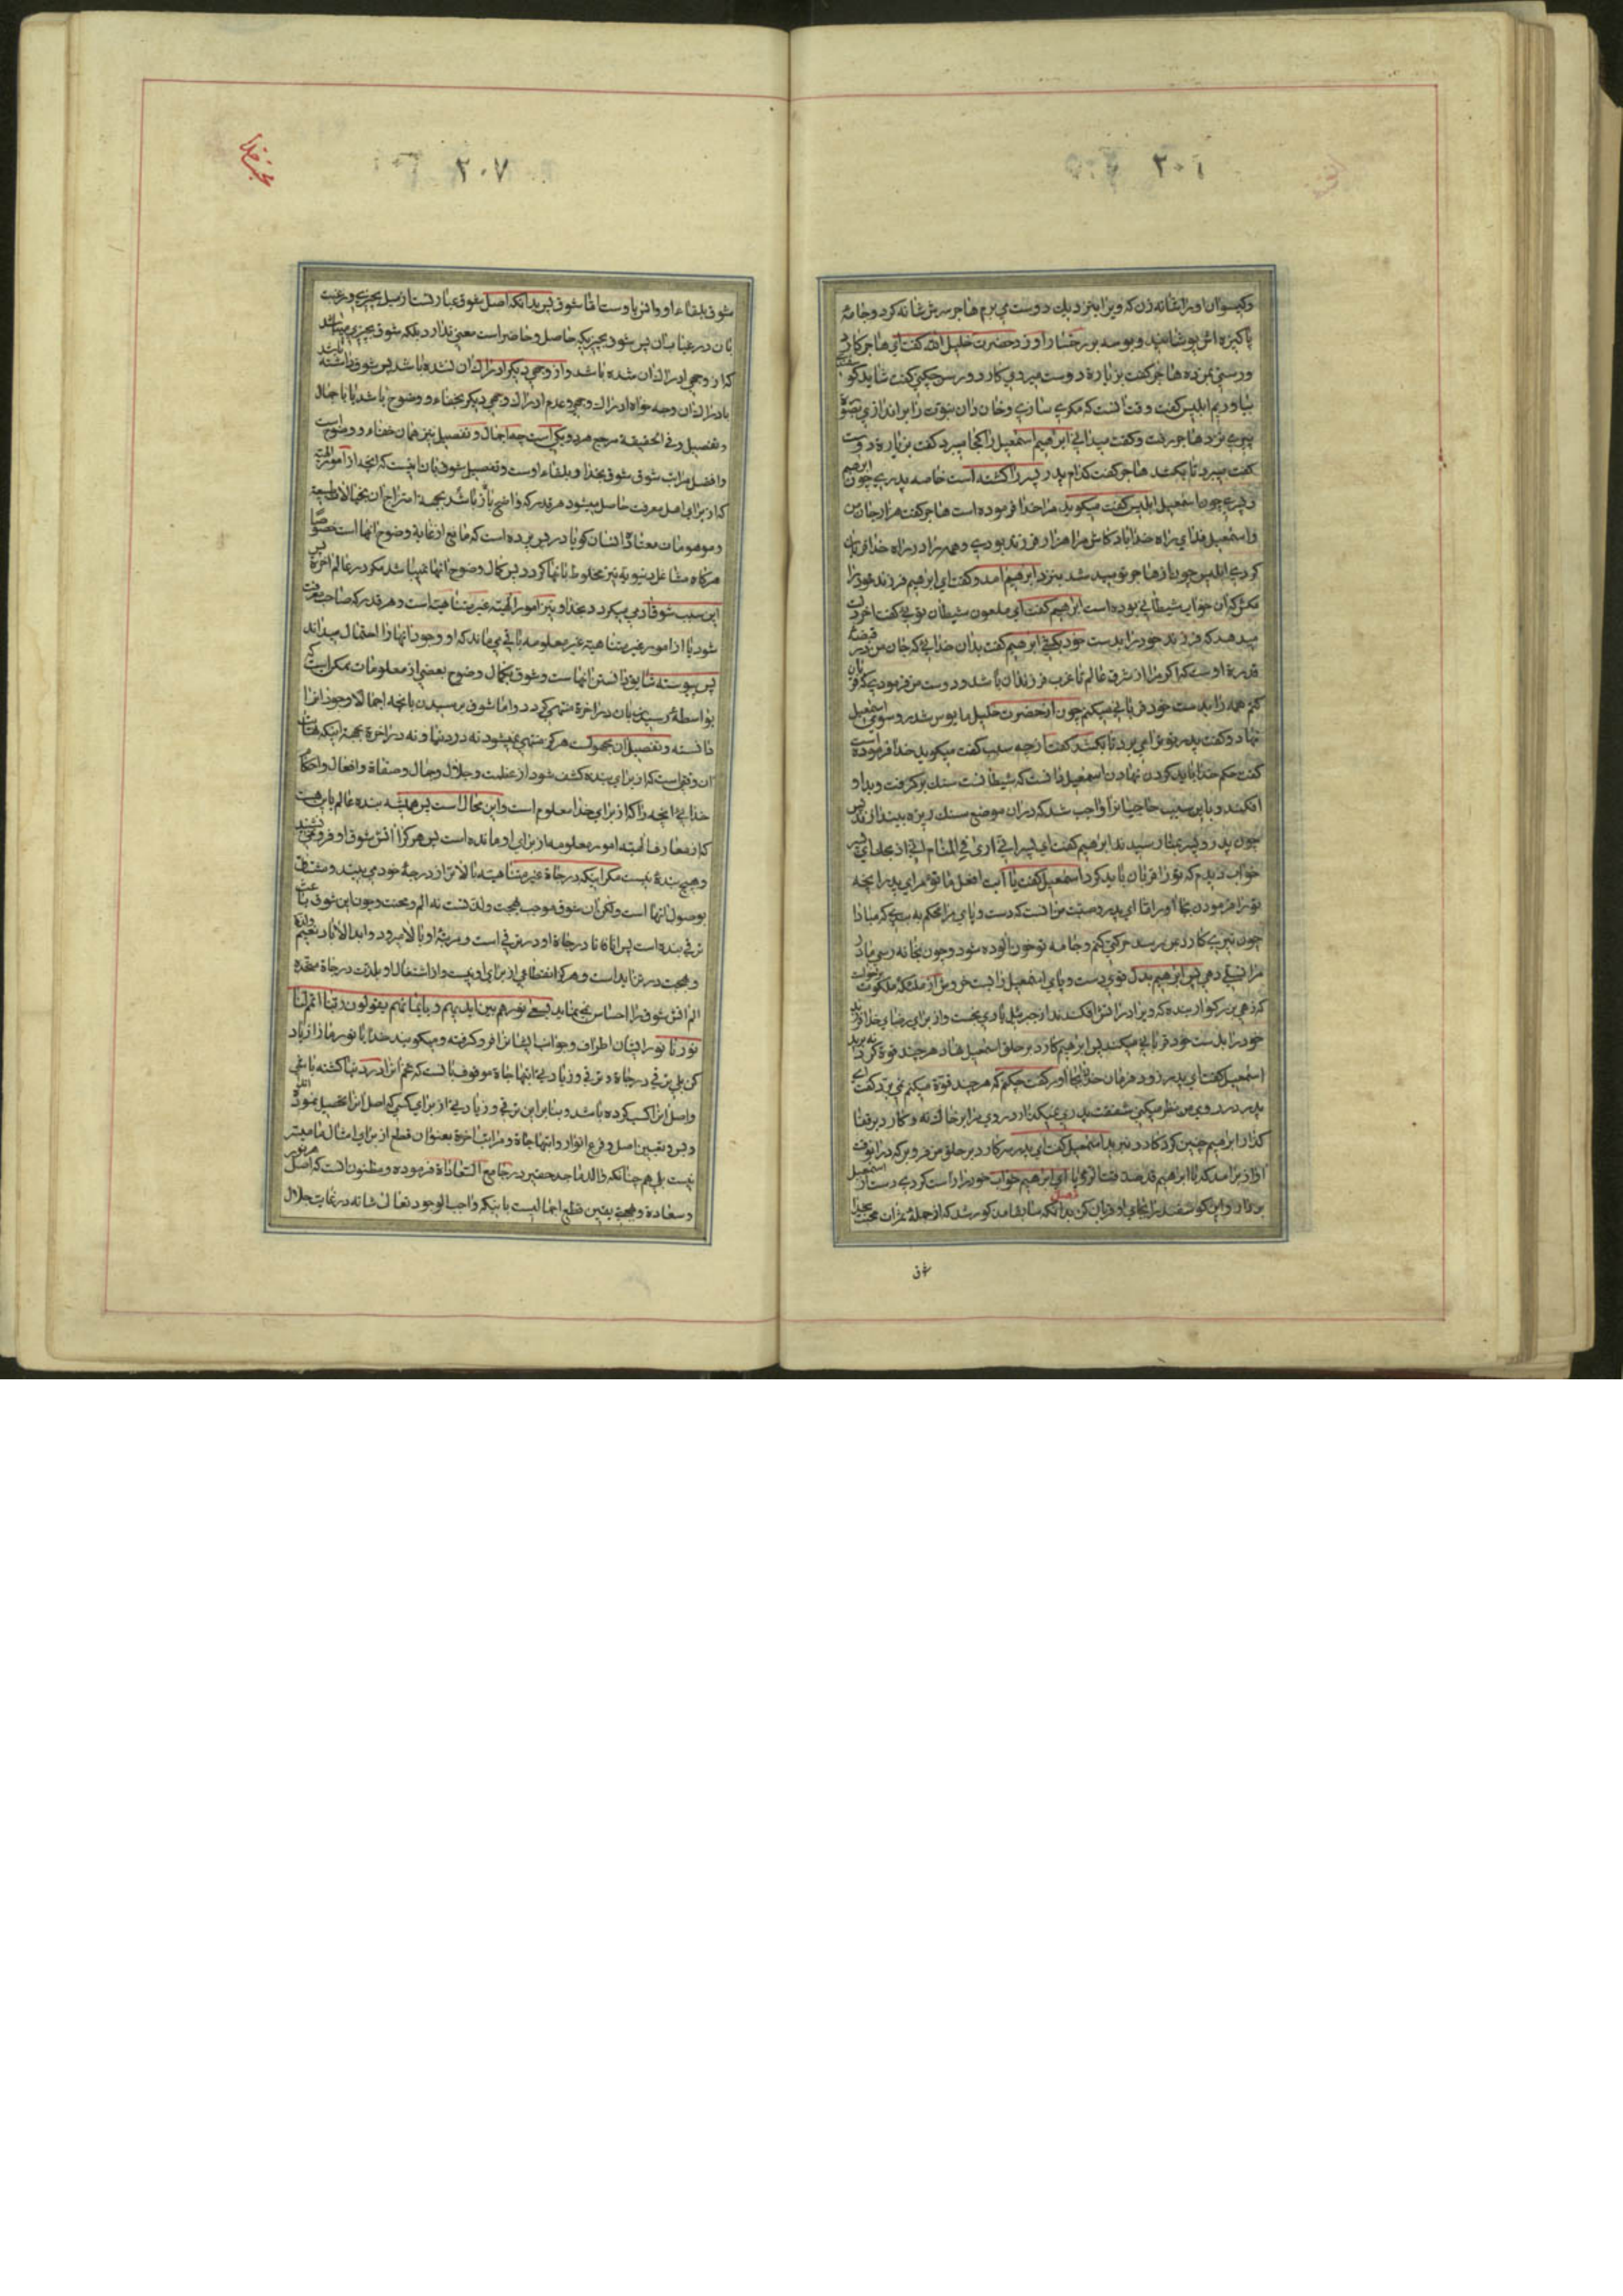 ٢٠٦
وکیسوان او را شانه زن که ویرا بنزدیك دوست می برم هاجر سرش شانه کرد و جامهٔ
پاکیزه اش پوشانید و بوسه بر رخسار او زد حضرت خلیل الله گفت ای هاجر کاردی
ورسنی بمن ده هاجر گفت بزیارة دوست میروی کارد و رسن چکنی گفت شاید گوسفندی
بیاوریم ابلیس گفت وقت آنست که مکری سازی و خاندان نبوت را براندازی بصورة
پیری نزد هاجر رفت و گفت میدانی ابراهیم اسمعیل را کجا میبرد گفت بزیارة دوست
گفت میبرد تا بکشد هاجر گفت کدام پدر پسر را کشته است خاصه پدری چون ابرهیم
و پسری چون اسمعیل ابلیس گفت میگوید مرا خدا فرموده است هاجر گفت هزار جان من
و اسمعیل فدای راه خدا باد کاش مرا هزار فرزند بودی و همه را در راه خدا قربان
کردی ابلیس چون از هاجر نومید شد بنزد ابرهیم امد و گفت ای ابرهیم فرزند خود را
مکش که این خواب شیطانی بوده است ابرهیم گفت ای ملعون شیطان توئی گفت اخر دلت
میدهد که فرزند خود را بدست خود بکشی ابرهیم گفت بدان خدائی که جان من در قبضهٔ
قدرة اوست که اگر مرا از شرق عالم تا غرب فرزندان باشد و دوست من فرمودی که قربان
کنم همه را بدست خود قربانی میکنم چون از حضرت خلیل مایوس شد رو بسوی اسمعیل
نهاد و گفت پدر تو ترا می برد تا بکشد گفت از چه سبب گفت میگوید خدا فرموده است
گفت حکم خدا را باید گردن نهادن اسمعیل دانست که شیطانست سنك برگرفت و بدو
افکند و باین سبب حاجیانرا واجب شد که در ان موضع سنك ریزه بیندازند پس
چون پدر و پسر بمنا رسیدند ابرهیم گفت ای پسر انی اری فی المنام انی اذبحك ای پسر
خواب دیدم که تو را قربان باید کرد اسمعیل گفت یا ابت افعل ما تؤمر ای پدر انچه
تو را فرموده‌ان بجا اور اما ای پدر وصیت من انست که دست و پای مرا محکم به بندی که مبادا
چون تیزی کارد بمن رسد حرکتی کنم و جامه تو خون الوده شود و چون بخانه رسی مادر
مرا تسلی دهی پس ابرهیم بدل قوی دست و پای اسمعیل را بست خروش از ملئکه ملکوت برخواست
که زهی بزرگوار بنده که ویرا در اتش افکندند از جبرئیل یاری نخست و از برای رضای خدا فرزند
خود را بدست خود قربانی میکند پس ابرهیم کارد بر حلق اسمعیل نهاد هر چند قوة کرد نه برید
اسمعیل گفت ای پدر زود فرمان خدا بجا اور گفت چکنم که هر چند قوة میکنم نمی برد گفت ای
پدر در روی من نظر میکنی شفقت پدری نمیگذارد روی مرا بر خاك نه و کارد بر قفا
گذار ابرهیم چنین کرد کارد نبرید اسمعیل گفت ای پدر سر کارد بر حلق من فرو بر که در انوقت
اواز برامد که یا ابراهیم قد صدقت الرؤیا ای ابرهیم خواب خود را راست کردی دست از اسمعیل
بردار و این گوسفند را بجای او قربان کن فصل بدانکه سابقا مذکور شد که از جملهٔ ثمرات محبت خدا
شوق
٢٠٧
محبت خدا
شوق بلقاء او و انس باوست اما شوق پس بدانکه اصل شوق عبارتست از میل بچیزی و رغبت
بان در غیاب ان پس شود بچیزیکه حاصل و حاضر است معنی ندارد بلکه شوق بچیزی میباشد
که از وجهی ادراك ان شده باشد و از وجهی دیگر ادراك ان نشده باشد پس شوق داشته باشد
بادراك ان وجه خواه ادراك وجهی و عدم ادراك وجهی دیگر بخفاء و وضوح باشد یا باجمال
و تفصیل و فی الحقیقة مرجع هر دو یکی است چه اجمال و تفصیل نیز همان خفاء و وضوح است
و افضل مراتب شوق شوق بخدا و بلقاء اوست و تفصیل شوق بان اینست که انچه از امور الهیة
که از برای اهل معرفت حاصل میشود هر قدر که واضح باشد باز بجهة امتزاج ان بخیالات طبیعة
و موهومات معتاده انسان گویا در پس پرده است که مانع از غایة وضوح انها است خصوصا
هرگاه مشاغل دنیویه نیز مخلوط بانها گردد پس کمال وضوح انها نمیباشد مگر در عالم اخرة پس
این سبب شوق ادمی میگردد بخدا و نیز امور الهیه غیر متناهیة است و هر قدر که صاحب معرفت
شود باز امور غیر متناهیة غیر معلومه باقی می ماند که او وجود انها را احتمال میداند
پس پیوسته شایق دانستن انهاست و شوق بکمال وضوح بعضی از معلومات ممکن است که
بواسطهٔ رسیدن بان در اخرة منتهی گردد و اما شوق برسیدن بانچه اجمالا وجود انرا
دانسته و تفصیل ان مجهولست هرگز منتهی نمیشود نه در دنیا و نه در اخرة بجهة اینکه نهایت
ان وقتی است که از برای بنده کشف شود از عظمت و جلال و جمال و صفاة و افعال و احکام
خدائی انچه را که از برای خدا معلوم است و این محال است پس همیشه بنده عالم باین هست
که از معارف الهیه امور معلومه از برای او مانده است پس هرگز اتش شوق او فرو نمی نشیند
و هیچ بندهٔ نیست مگر اینکه درجاة غیر متناهیه بالاتر از درجهٔ خود می بیند و مشتاق
بوصول انها است و لکن ان شوق موجب بهجت و لذتست نه الم و محنت و چون این شوق باعث
ترقی بنده است پس اناً فاناً درجاة او در ترقی است و مرتبهٔ او بالا میرود و ابد الاباد نعیم و لذة
و بهجت در تزاید است و هرگز انقطاعی از برای او نیست و از اشتغال او بلذت درجاة متجدده
الم اتش شوق را احساس نمی نماید یسعی نورهم بین ایدیهم و بایمانهم یقولون ربنا اتمم لنا
نورنا نور ایشان اطراف و جوانب ایشانرا فرو گرفته و میگویند خدایا نور ما را زیاد
کن بلی ترقی در درجاة و ترقی و زیادتی ابتهاجاة موقوف بانست که تخم انرا در دنیا کشته باشی
و اصل انرا کسب کرده باشد و بنابر این ترقی و زیادتی از برای کسی که اصل انرا تحصیل نموده
و بس و تعیین اصل و فرع انوار و ابتهاجاة و مراتب اخرة بعنوان قطع از برای امثال ما میسر
نیست بلی هم چنانکه والد ماجد حقیر در جامع السعاداة فرموده و مظنون انست که اصل هر نور
و سعادة و بهجتی یقین قطع اجمالیست باینکه واجب الوجود تعالی شانه در غایت جلال